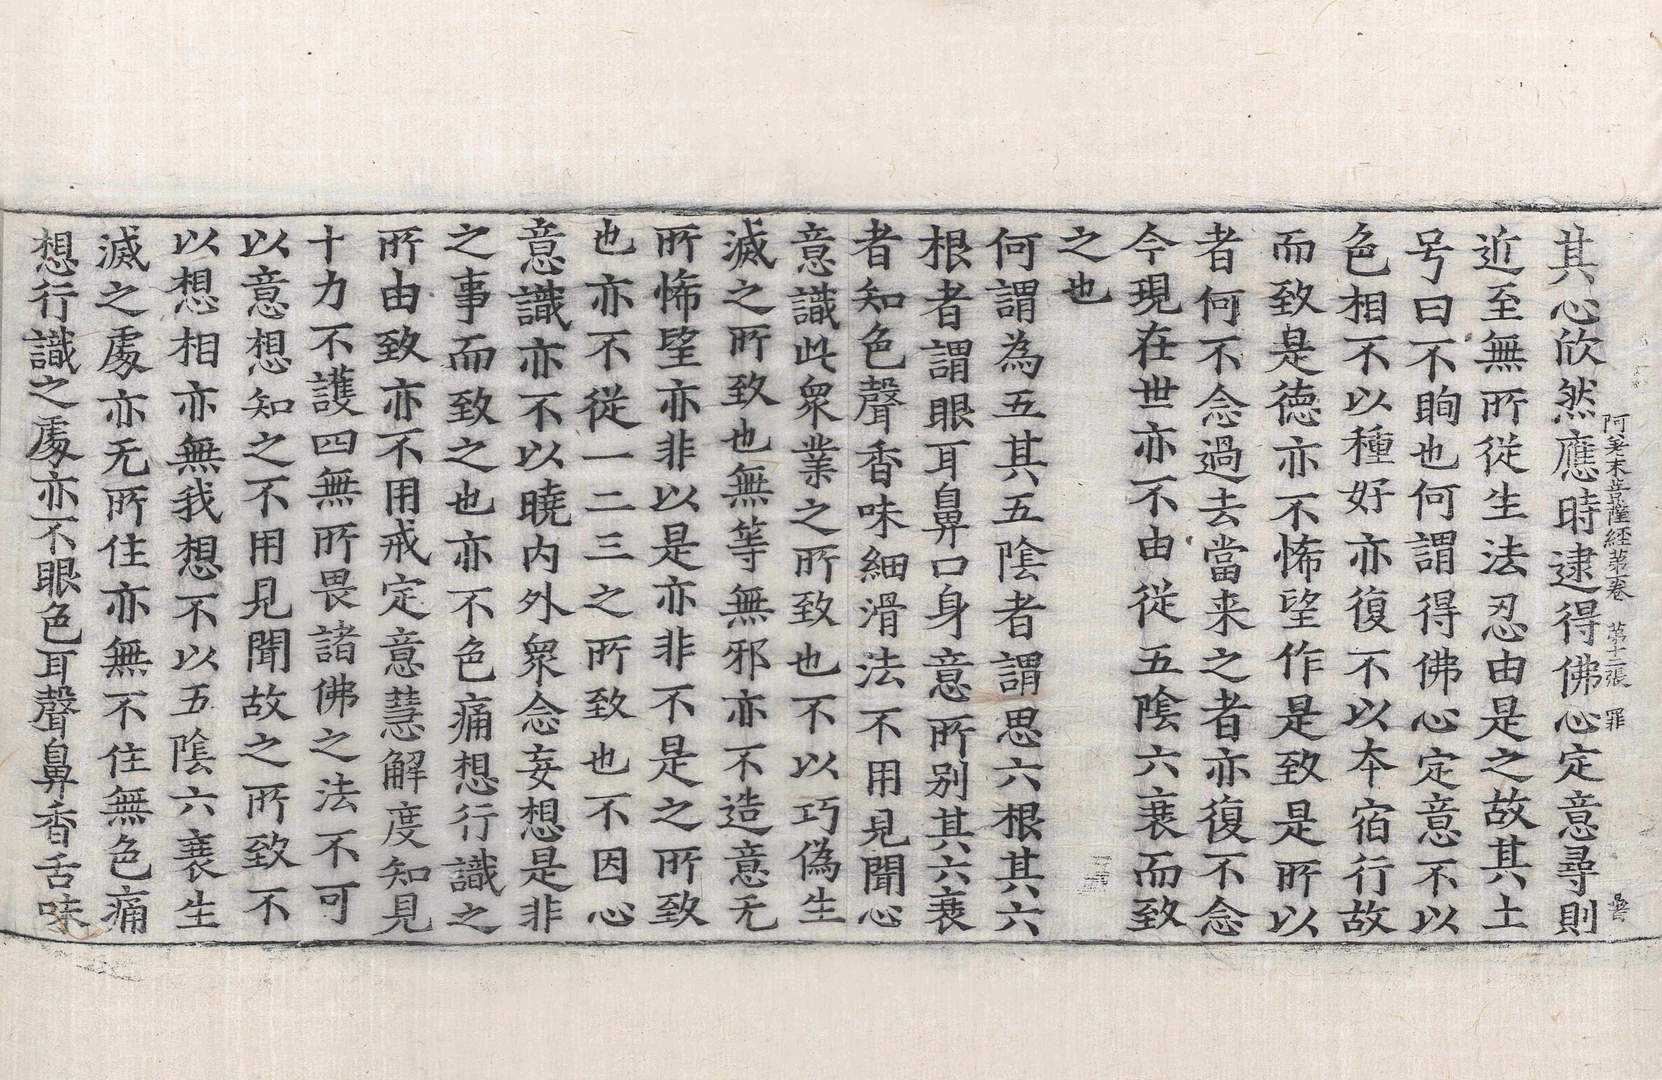 阿差末菩薩經第一卷 第十二張 罪
其心欣然應時逮得佛心定意尋則
近至無所從生法忍由是之故其土
号曰不眴也何謂得佛心定意不以
色相不以種好亦復不以本宿行故
而致是德亦不悕望作是致是所以
者何不念過去當来之者亦復不念
今現在世亦不由從五陰六衰而致
之也
何謂為五其五陰者謂思六根其六
根者謂眼耳鼻口身意所别其六衰
者知色聲香味細滑法不用見聞心
意識此衆業之所致也不以巧偽生
滅之所致也無等無邪亦不造意无
所悕望亦非以是亦非不是之所致
也亦不從一二三之所致也不因心
意識亦不以曉内外衆念妄想是非
之事而致之也亦不色痛想行識之
所由致亦不用戒定意慧解度知見
十力不護四無所畏諸佛之法不可
以意想知之不用見聞故之所致不
以想相亦無我想不以五陰六衰生
滅之處亦无所住亦無不住無色痛
想行識之處亦不眼色耳聲鼻香舌味